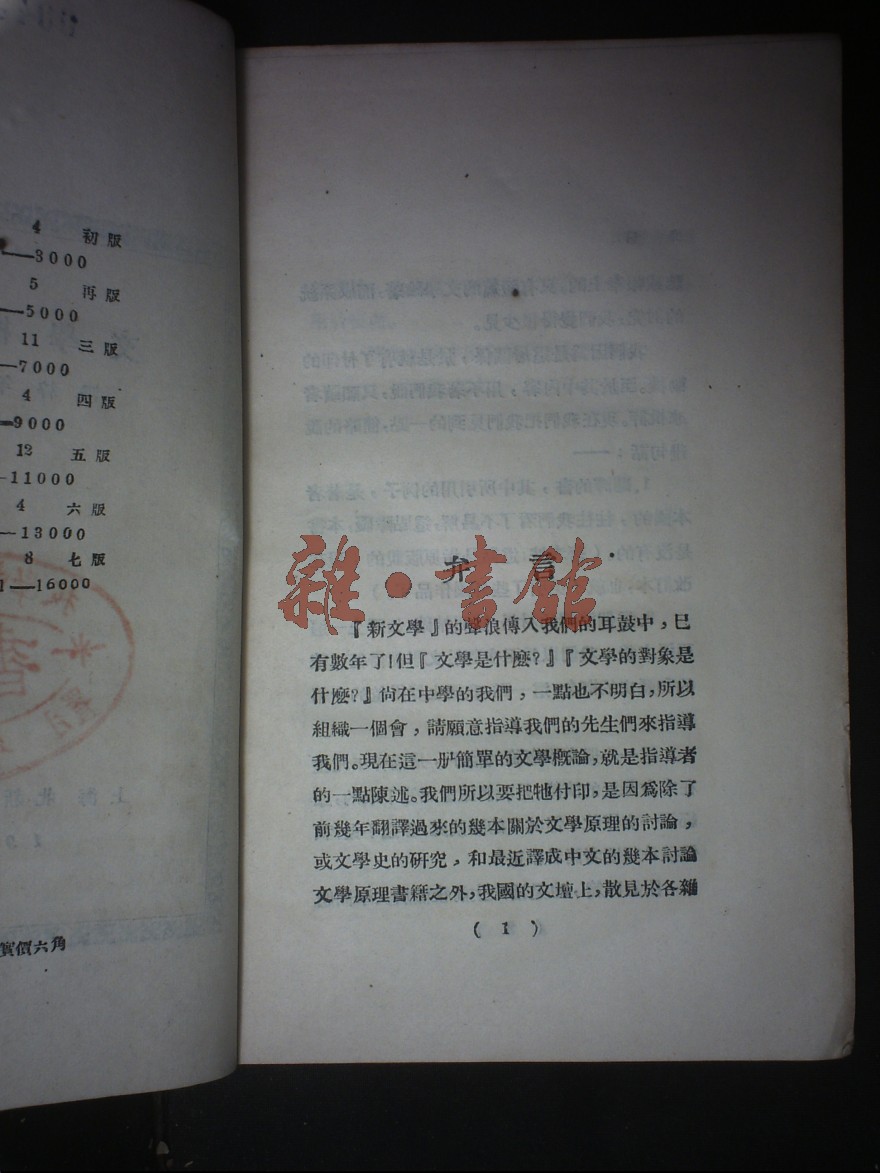 4 初版
—3000
5 再版
—5000
11 三版
—7000
4 四版
—9000
12 五版
—11000
4 六版
—13000
8 七版
1—16000
實價六角
雜·書館
弁言
『新文學』的聲浪傳入我們的耳鼓中，已
有數年了！但『文學是什麼？』『文學的對象是
什麼？』尙在中學的我們，一點也不明白，所以
組織一個會，請願意指導我們的先生們來指導
我們。現在這一册簡單的文學概論，就是指導者
的一點陳述。我們所以要把牠付印，是因爲除了
前幾年翻譯過來的幾本關於文學原理的討論，
或文學史的研究，和最近譯成中文的幾本討論
文學原理書籍之外，我國的文壇上，散見於各雜
(1)